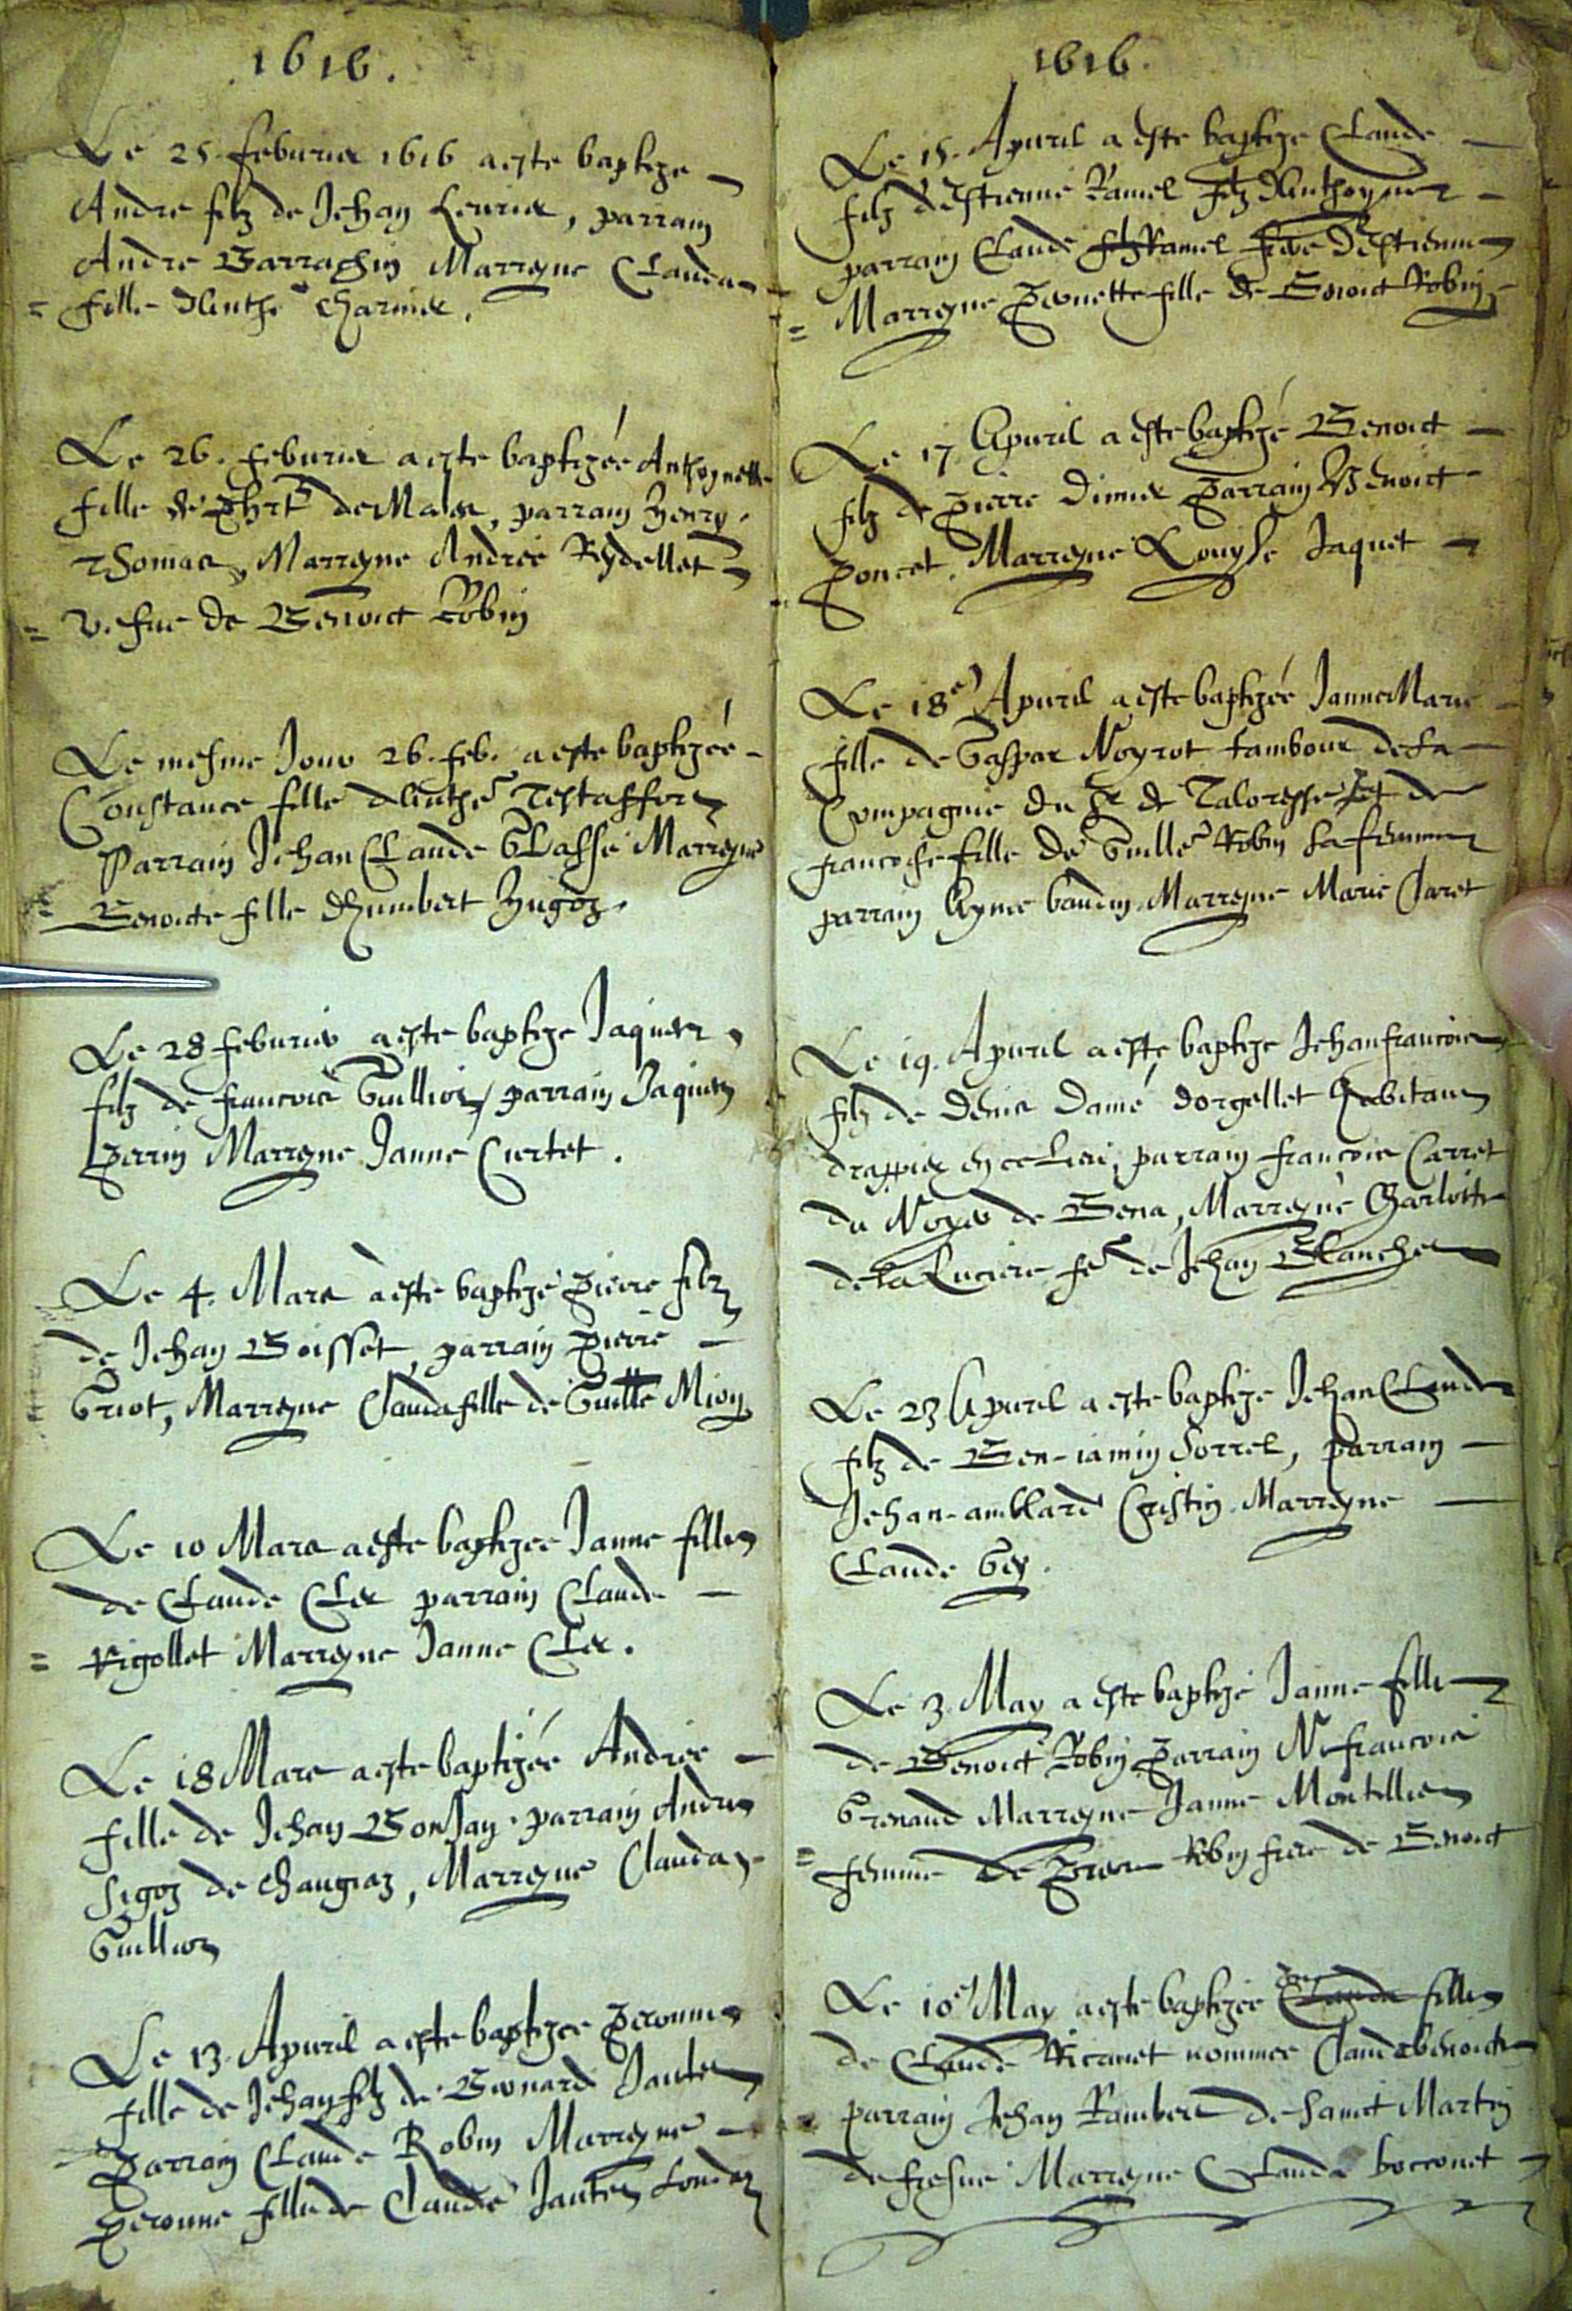 1616.
Le 25 feburier 1616 a este baptize
Andre filz de Jehan Leurier, parrain
Andre Garrachin Marreyne Clauda
fille dAnthe Charrier.
Le 26. feburier a este baptizée Anthoynette
fille de deMalar, parrain Henry
Thomas, Marreyne Andrée Reydellet
vefue de Benoict Robin
Le mesme Jour 26. feb. a este baptizée
Constance fille dAnthe
Parrain Jehan Claude Marreyne
Benoicte fille dHumbert Hugoz.
Le 28 feburier a este baptize Jaques
filz de francois Guillion, parrain Jaques
Perrin Marreyne Janne Curtet.
Le 4. Mars a este baptizé Pierre filz
de Jehan Boisset, parrain Pierre
Griot, Marreyne Clauda fille de Guille Mion
Le 10 Mars a este baptizee Janne fille
de Claude Cler parrain Claude
Rigollet Marreyne Janne Cler.
Le 18 Mars a este baptizée Andrée
fille de Jehan BonJay. parrain Andre
Sigoz de Changiaz, Marreyne Clauda
Guillion
Le 13. Apuril a este baptizee Peronne
fille de Jehan filz de Jantet
Parrain Claude Robin Marreyne
Peronne fille de Claude Jantet
1616.
Le 15. Apuril a este baptize Claude
filz dEstienne Ramel filz dAnthoyne
parrain Claude Ramel frere dEstienne
Marreyne Pernette fille de Benoict Robin
Le 17 Apuril a este baptizé Benoict
filz de Pierre Dimier Parrain Benoict
Poncet, Marreyne Louyse Jaquet
Le 18e Apuril a este baptizée JanneMarie
fille de Gaspar Noyrot tambour de La
Compagnie du Sr de et de
francoise fille de Guille Robin sa femme
parrain Ayme baudin Marreyne Marie Caret
Le 19. Apuril a este baptize Jehanfrancois
filz de Denis Damé dorgellet habitant
drappier en ce Lieu, parrain francois Carret
du Noyer de Bena, Marreyne Charlotte
dela Luciere fe de Jehan Blanchet
Le 23 Apuril a este baptize JehanClaude
filz de Ben-iamin Sorrel, parrain
Jehan-amblard Cristin. Marreyne
Claude Gex.
Le 3. May a este baptizé Janne fille
de Benoict Robin Parrain Nr francois
Grenaud Marreyne Janne Montillier
femme de Pierre Robin frere de Benoict
Le 10e May a este baptizée Clauda fille
de Claude nommee Claudabenoicte
parrain Jehan Rambert de Sainct Martin
de fresne Marreyne Clauda bocconet